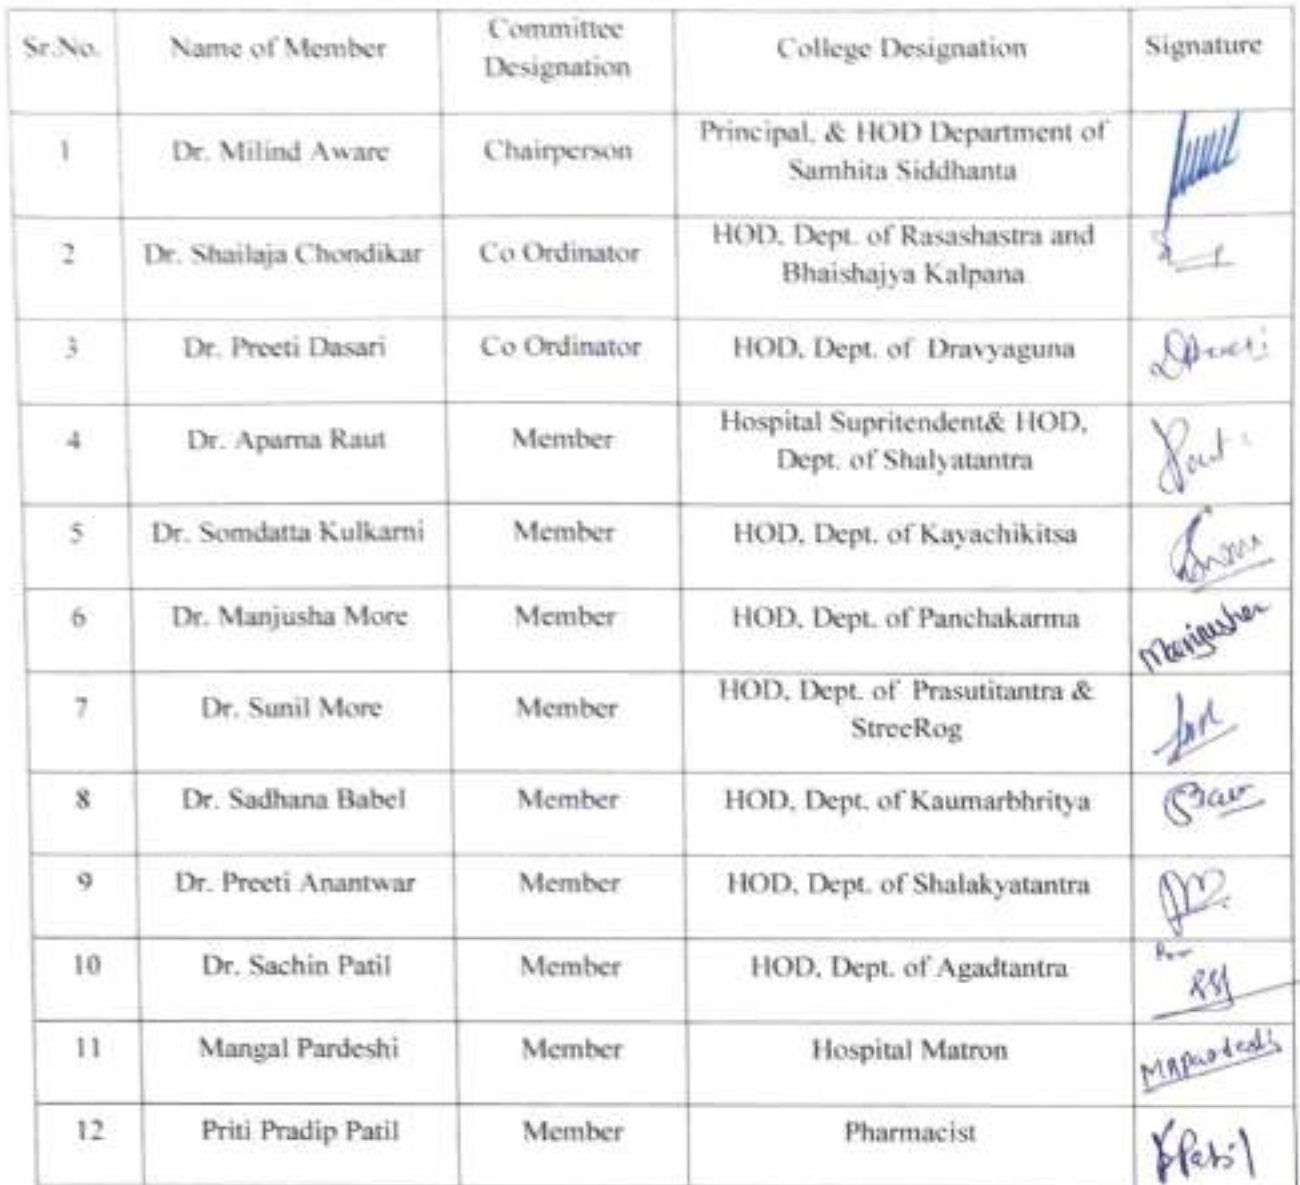 Sr.No. Name of Member Committee Designation College Designation Signature
1 Dr. Milind Aware Chairperson Principal, & HOD Department of Samhita Siddhanta
2 Dr. Shailaja Chondikar Co Ordinator HOD, Dept. of Rasashastra and Bhaishajya Kalpana
3 Dr. Preeti Dasari Co Ordinator HOD, Dept. of Dravyaguna
4 Dr. Aparna Raut Member Hospital Supritendent& HOD, Dept. of Shalyatantra
5 Dr. Somdatta Kulkarni Member HOD, Dept. of Kayachikitsa
6 Dr. Manjusha More Member HOD, Dept. of Panchakarma Manjusha
7 Dr. Sunil More Member HOD, Dept. of Prasutitantra & StreeRog
8 Dr. Sadhana Babel Member HOD, Dept. of Kaumarbhritya
9 Dr. Preeti Anantwar Member HOD, Dept. of Shalakyatantra
10 Dr. Sachin Patil Member HOD, Dept. of Agadtantra
11 Mangal Pardeshi Member Hospital Matron MRPardeshi
12 Priti Pradip Patil Member Pharmacist PPatil